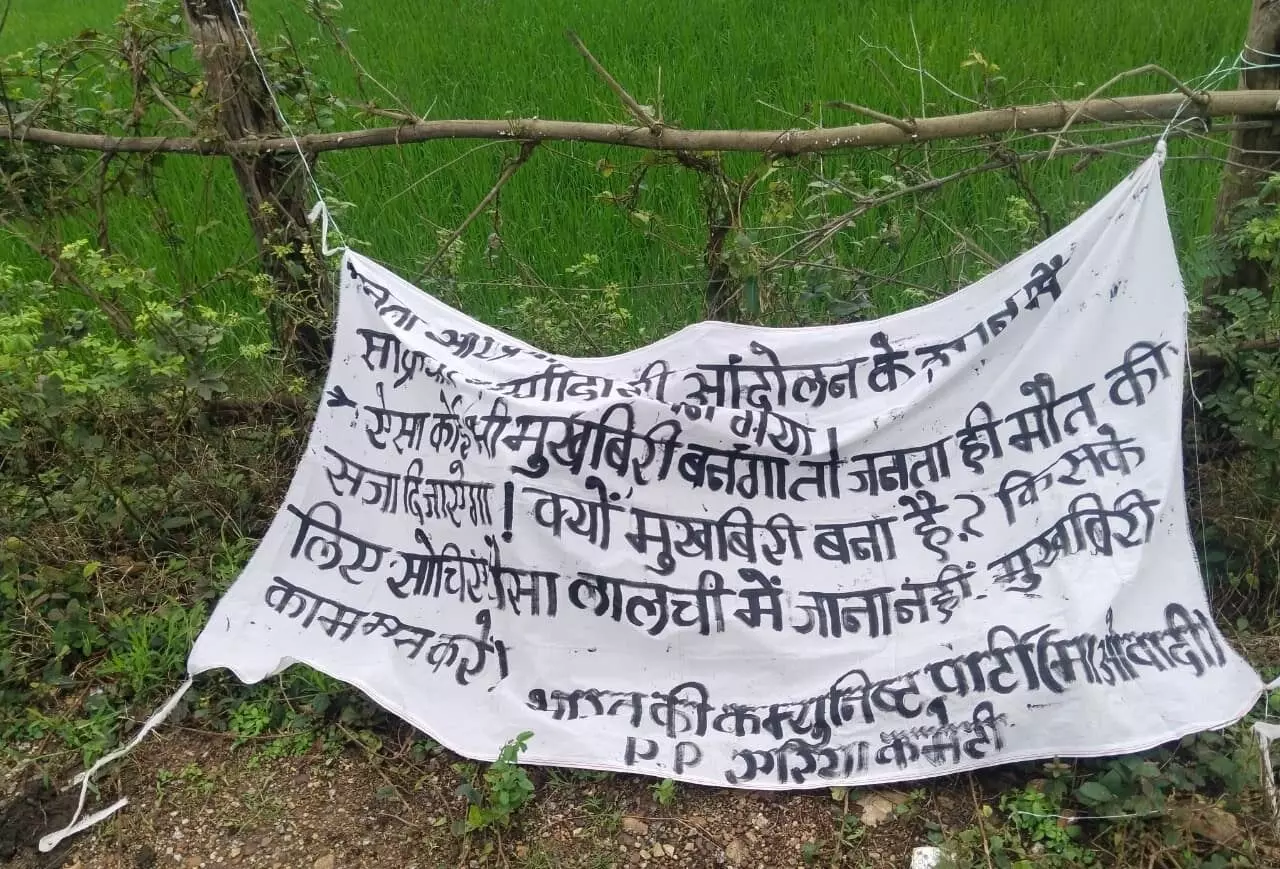 जनता
आंदोलन के में
गया।
* ऐसा कोई भी मुखबिरी बनेगा तो जनता ही मौत की
सजा दिजाऐगा! क्यों मुखबिरी बना है.? किसके
लिए सोचिऐ पैसा लालची में जाना नहीं. मुखबिरी
का मत करे।
भारत की कम्युनिष्ट पार्टी (माओवादी)
P.P एरिया कमेटी